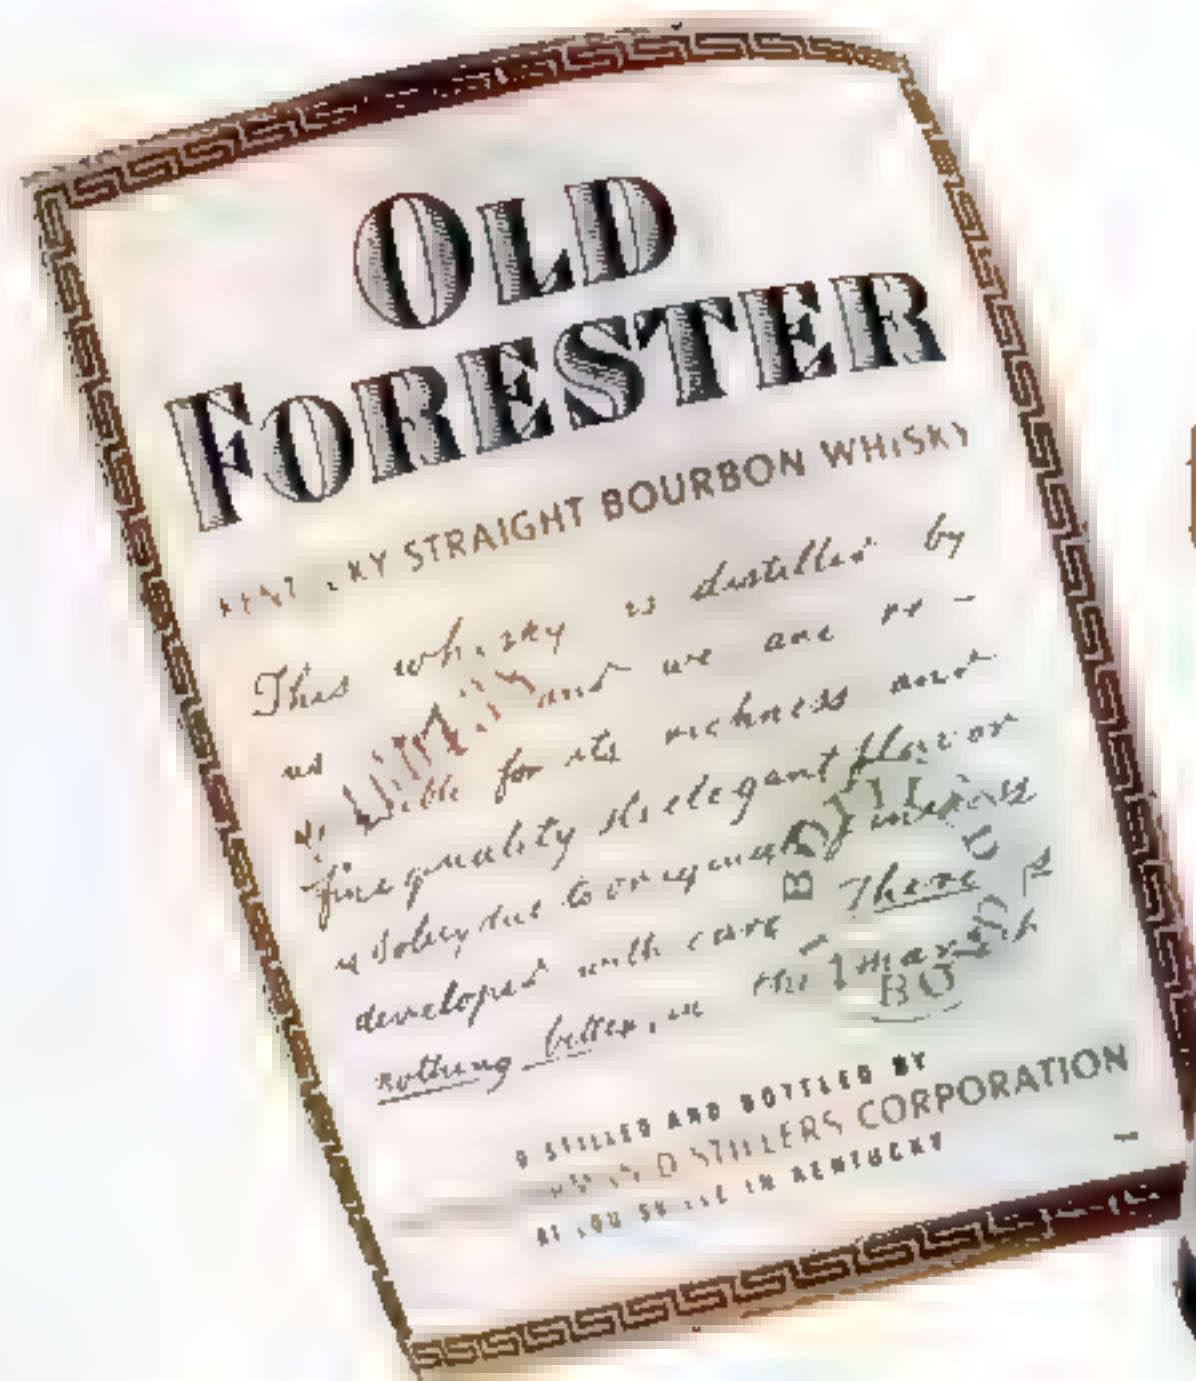 OLD
FORESTER
STRAIGHT BOURBON WHISKY
This whisky is distilled by
us and we are re-
for its richness and
fine quality Its elegant flavor
is Solely due to original
developed with care There is
nothing better, in the market
BOTTLED
DISTILLED AND BOTTLED BY
DISTILLERS CORPORATION
AT LOUISVILLE IN KENTUCKY